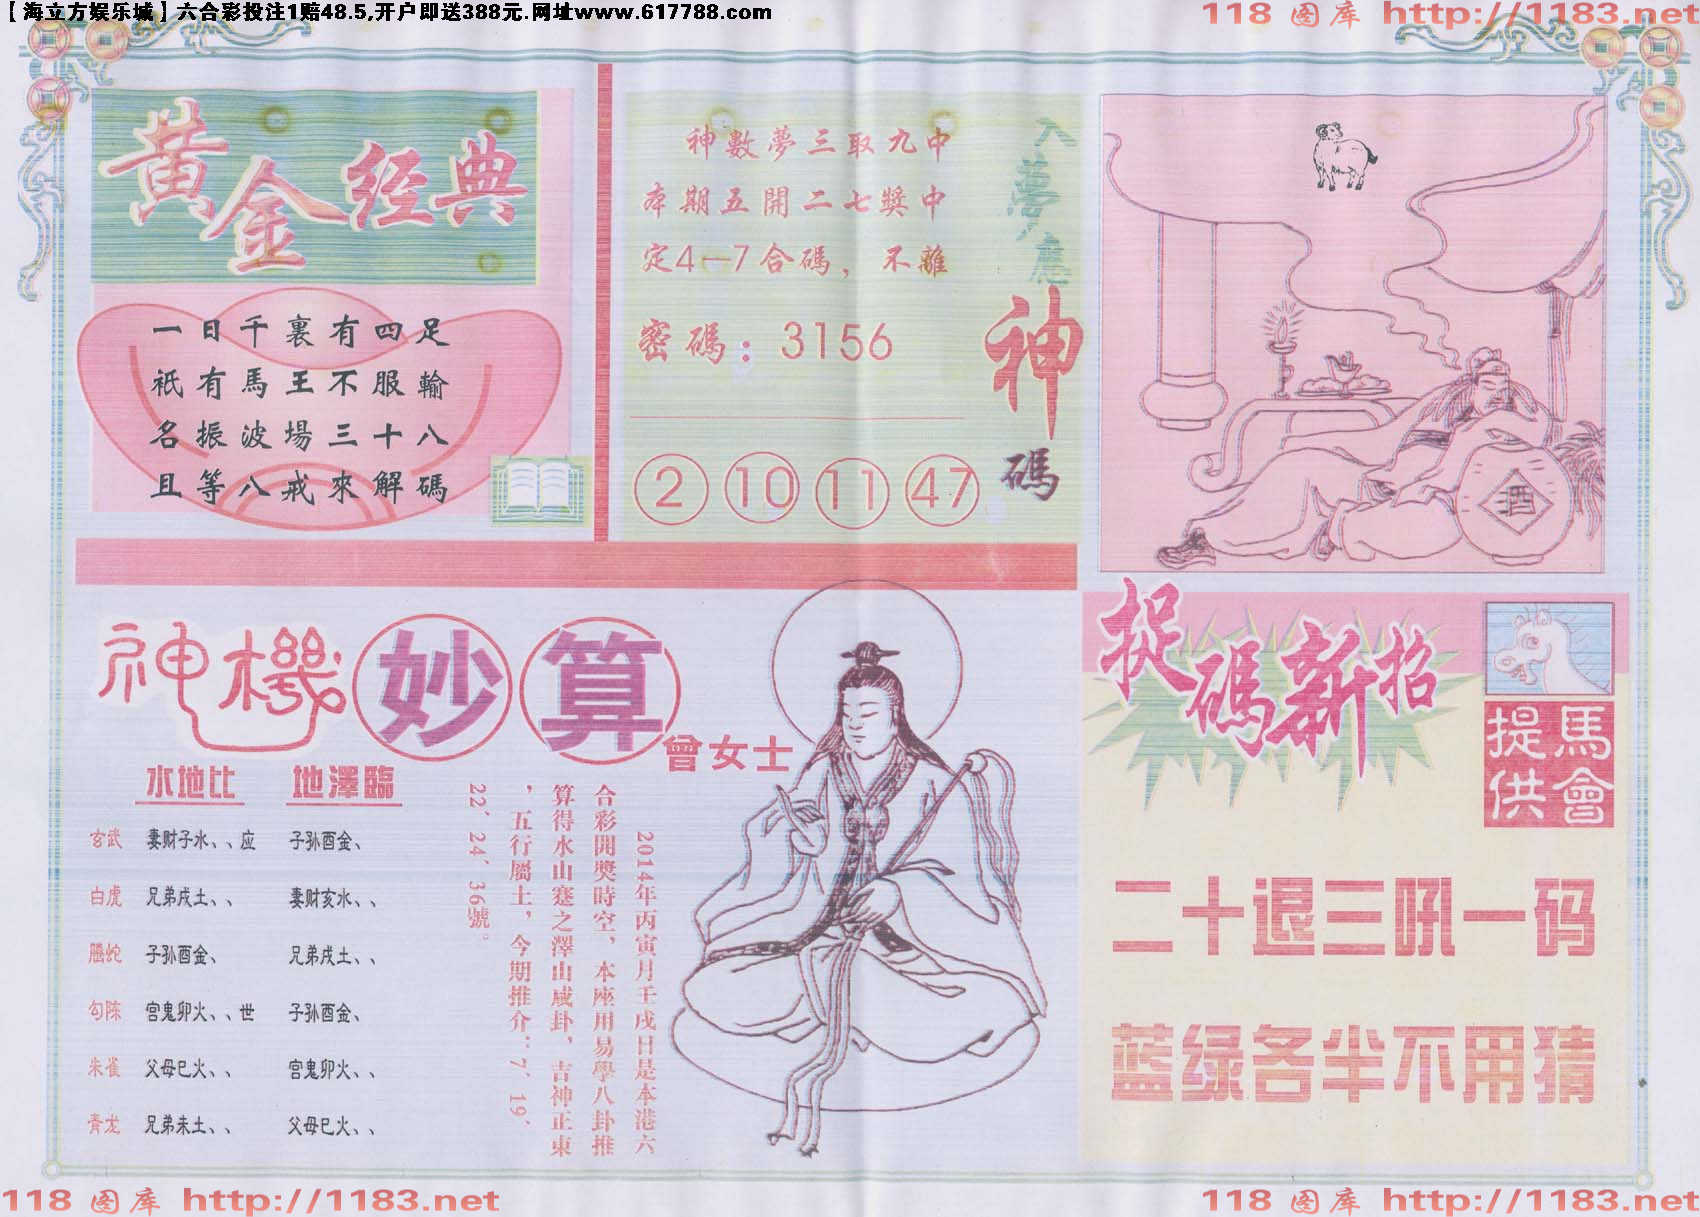 【海立方娱乐城】六合彩投注1赔48.5,开户即送388元.网址www.617788.com
118 图库 http://1183.net
黄金经典
一日千裏有四足
衹有馬王不服輸
名振波場三十八
且等八戒來解碼
神數夢三取九中
本期五開二七獎中
定4—7合碼，不離
密碼：3156
2 10 11 47
入夢應神碼
酒
神機妙算
曾女士
水地比 地澤臨
玄武 妻财子水、、应 子孙酉金、
白虎 兄弟戌土、、 妻财亥水、、
螣蛇 子孙酉金、 兄弟戌土、、
勾陈 官鬼卯火、、世 子孙酉金、
朱雀 父母巳火、、 官鬼卯火、、
青龙 兄弟未土、、 父母巳火、、
2014年丙寅月壬戌日是本港六
合彩開獎時空，本座用易學八卦推
算得水山蹇之澤山咸卦，吉神正東
，五行屬土，今期推介：7、19、
22、24、36號。
捉碼新招
馬會提供
二十退三吼一码
蓝绿各半不用猜
118 图库 http://1183.net
118 图库 http://1183.net